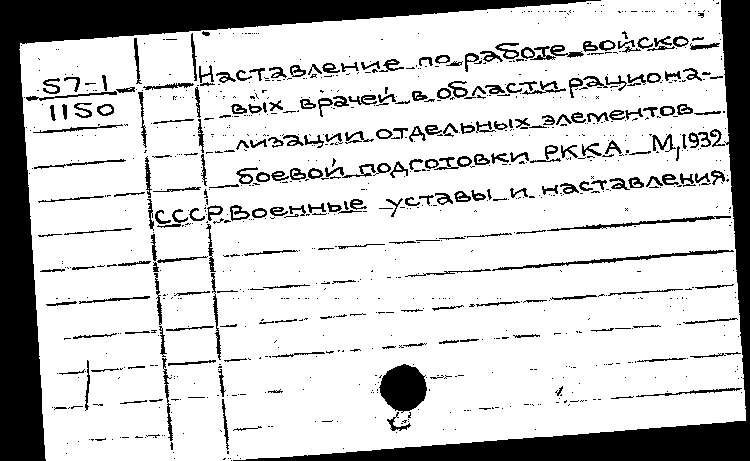 57-1
1150
Наставление по работе войско-
вых врачей в области рациона-
лизации отдельных элементов
боевой подготовки РККА. М, 1932.
СССР. Военные уставы и наставления